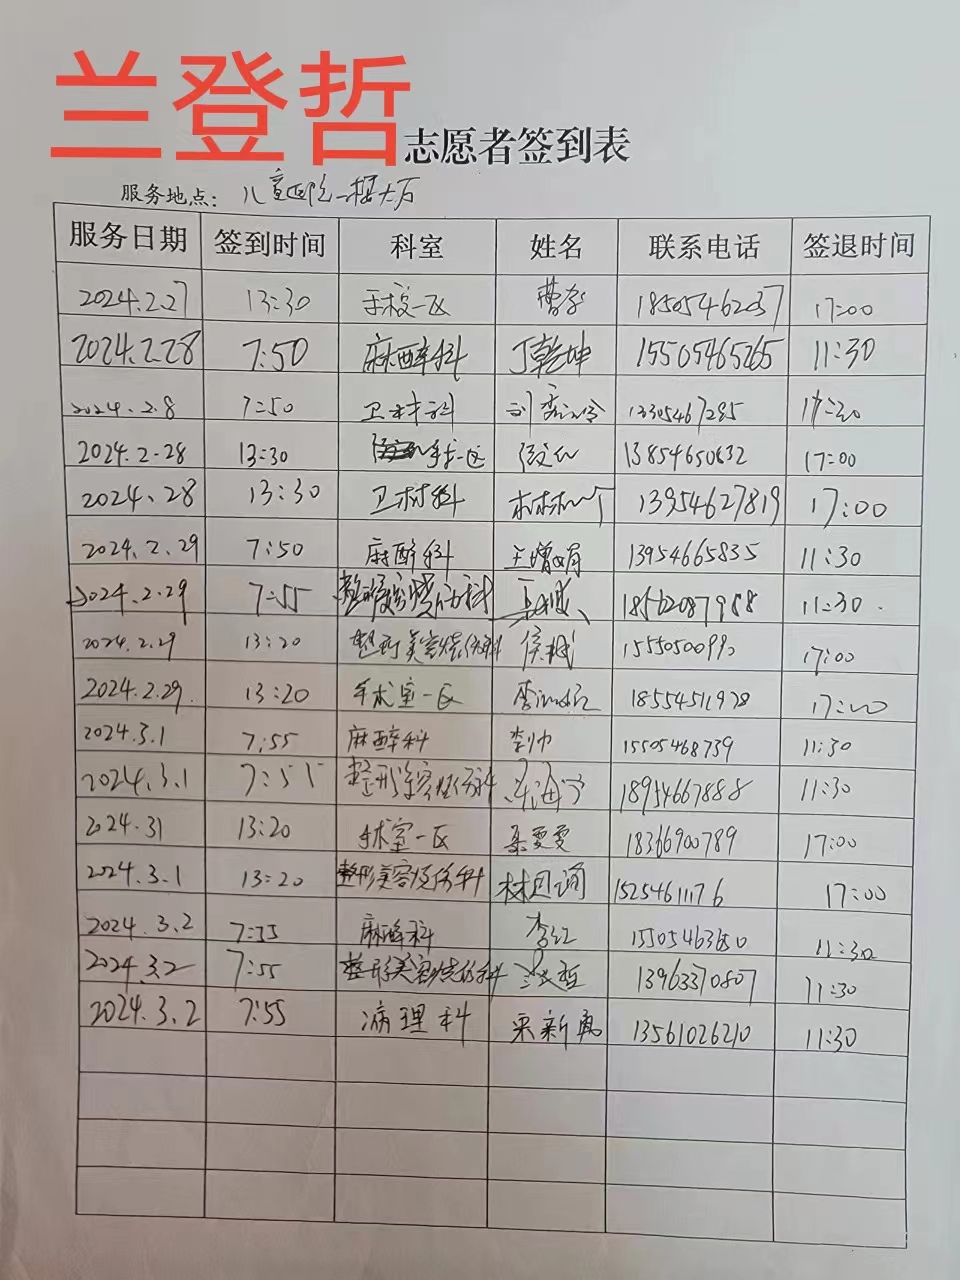 兰登哲
志愿者签到表
服务地点：儿童医院一楼大厅
服务日期 签到时间 科室 姓名 联系电话 签退时间
2024.2.27 13:30 一区 18505462037 17:00
2024.2.28 7:50 麻醉科 丁乾坤 15505465265 11:30
2024.2.8 7:50 卫材科 13305467285
2024.2.28 13:30 手术一区 13854650632 17:00
2024.28 13:30 卫材科 13954627819 17:00
2024.2.29 7:50 麻醉科 王增娟 13954665835 11:30
2024.2.29 7:55 11:30
2024.2.29 13:20 整形美容烧伤科 17:00
2024.2.29. 13:20 手术室一区 17:00
2024.3.1 7:55 麻醉科 李帅 15505468739 11:30
2024.3.1 7:55 整形美容烧伤科 18954667888 11:30
2024.31 13:20 手术室一区 18366900789 17:00
2024.3.1 13:20 整形美容烧伤科 15254611176 17:00
2024.3.2 7:55 麻醉科 李红 15505463680 11:30
2024.3.2 7:55 整形美容烧伤科 13963370807 11:30
2024.3.2 7:55 病理科 13561026210 11:30